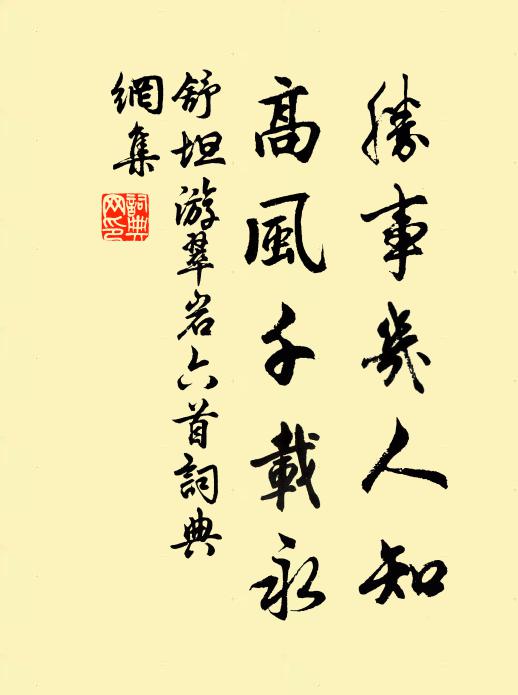 勝事幾人知
高風千載永
舒坦游翠岩六首詞典
網集
詞典
网印